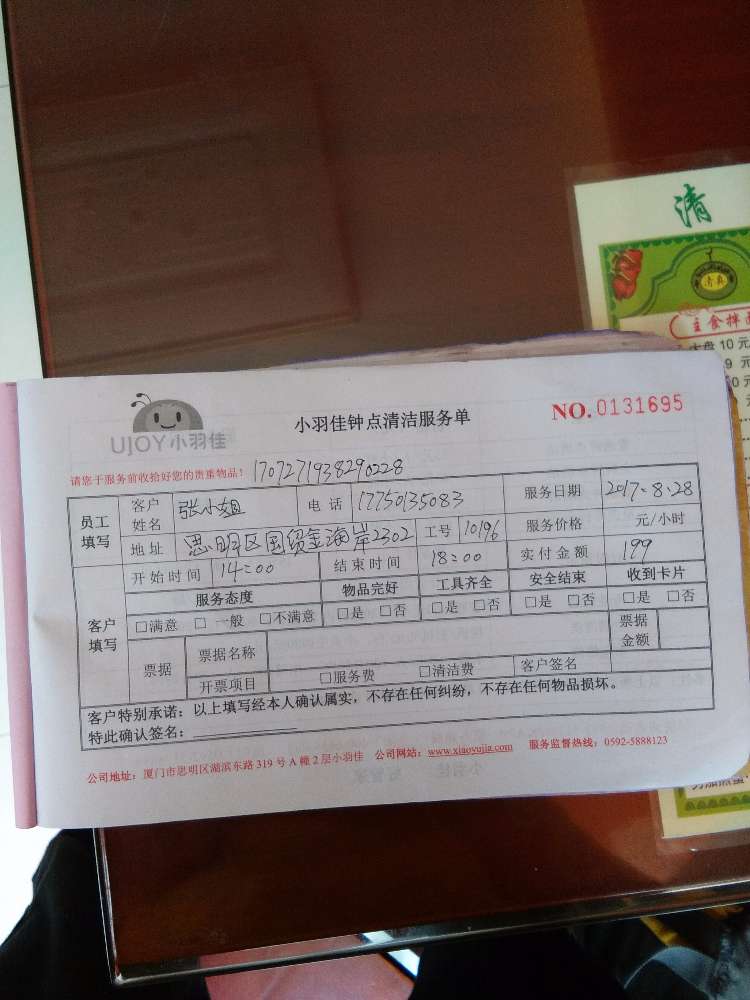 清
清真
主食拌面
大盘10元
小羽佳钟点清洁服务单
NO.0131695
UJOY小羽佳
请您于服务前收拾好您的贵重物品！ 1707271938290228
员工填写 客户姓名 张小姐 电话 17750135083 服务日期 2017.8.28
地址 思明区国贸金海岸2302 工号 10196 服务价格 元/小时
开始时间 14:00 结束时间 18:00 实付金额 199
客户填写 服务态度 物品完好 工具齐全 安全结束 收到卡片
□满意 □一般 □不满意 □是 □否 □是 □否 □是 □否 □是 □否
票据 票据名称 票据金额
开票项目 □服务费 □清洁费 客户签名
客户特别承诺：以上填写经本人确认属实，不存在任何纠纷，不存在任何物品损坏。
特此确认签名：
公司地址：厦门市思明区湖滨东路319号A幢2层小羽佳 公司网站：www.xiaoyujia.com 服务监督热线：0592-5888123